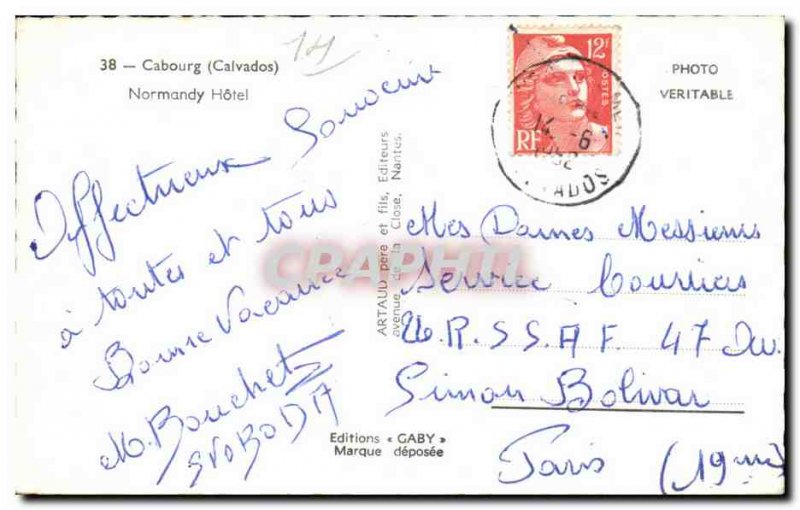 38 — Cabourg (Calvados)
Normandy Hôtel
14
PHOTO
VERITABLE
12F
POSTES
RF
14 -6
1952
CALVADOS
Affectueux Souvenir
à toutes et tous
Bonne Vacance
M. Bouchet
SVOBODA
ARTAUD père et fils, Editeurs
avenue de la Close, Nantes.
Mes Dames Messieurs
Service Courrier
U.R.S.S.A.F. 47 Av.
Simon Bolivar
Paris (19me)
Editions « GABY »
Marque déposée
CPAPHIL